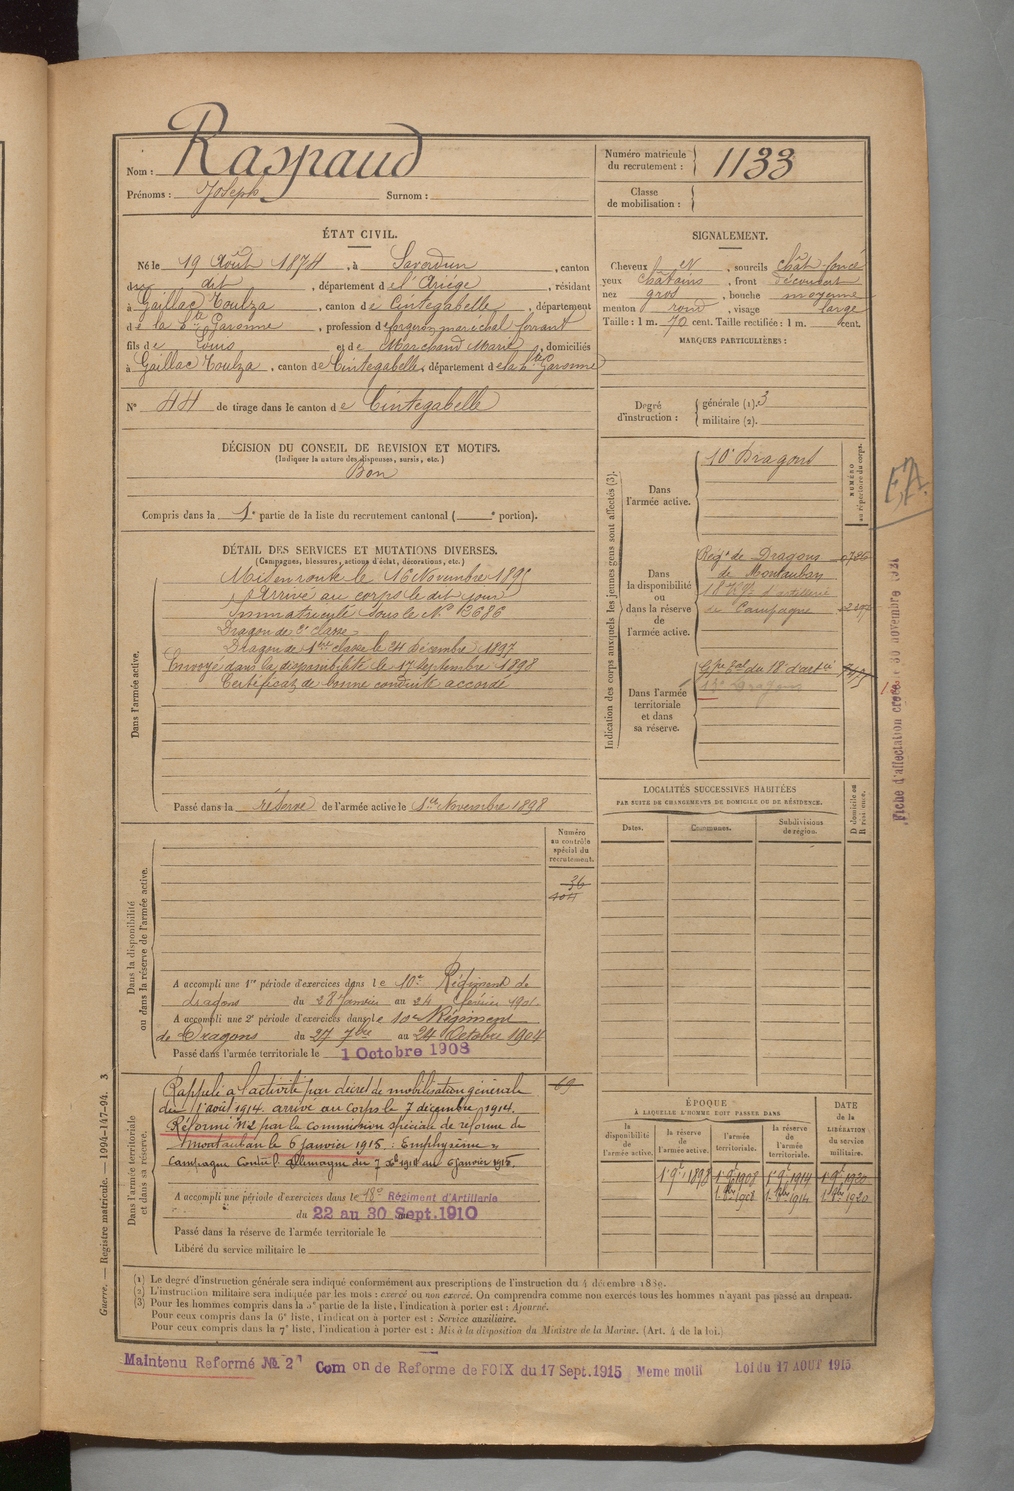 Nom : Raspaud
Prénoms : Joseph Surnom :
Numéro matricule
du recrutement : 1133
Classe
de mobilisation :
ÉTAT CIVIL.
Né le 19 Août 1874, à Saverdun, canton
dudit, département de l'Ariége, résidant
à Gaillac Toulza, canton de Cintegabelle, département
de la Hte Garonne, profession de forgeron maréchal ferrant
fils de Louis et de Marchand Marie, domiciliés
à Gaillac Toulza, canton de Cintegabelle, département de la Hte Garonne
N° 44 de tirage dans le canton de Cintegabelle
SIGNALEMENT.
Cheveux et N, sourcils chât. foncé
yeux châtains, front découvert
nez gros, bouche moyenne
menton rond, visage large
Taille : 1 m. 70 cent. Taille rectifiée : 1 m. cent.
MARQUES PARTICULIÈRES :
Degré
d'instruction :
générale (1). 3
militaire (2).
DÉCISION DU CONSEIL DE REVISION ET MOTIFS.
(Indiquer la nature des dispenses, sursis, etc.)
Bon
Compris dans la 1e partie de la liste du recrutement cantonal ( e portion).
DÉTAIL DES SERVICES ET MUTATIONS DIVERSES.
(Campagnes, blessures, actions d'éclat, décorations, etc.)
Dans l'armée active.
Mis en route le 16 Novembre 1895
Arrivé au corps le dit jour
Immatriculé sous le N°
Dragon de 2e classe
Dragon de 1ère classe le 24 Décembre 1897
Envoyé dans la disponibilité le 17 Septembre 1898
Certificat de bonne conduite accordé
Passé dans la réserve de l'armée active le 1er Novembre 1898
Indication des corps auxquels les jeunes gens sont affectés (3).
Dans
l'armée active.
10e Dragons
NUMÉRO
au répertoire du corps.
E.A.
Dans
la disponibilité
ou
dans la réserve
de
l'armée active.
Régt de Dragons
de Montauban
18e d'artillerie
de Campagne
Dans l'armée
territoriale
et dans
sa réserve.
Gpe tal du 18e d'artie
Dragons
Fiche d'affectation créée le 30 novembre
LOCALITÉS SUCCESSIVES HABITÉES
PAR SUITE DE CHANGEMENTS DE DOMICILE OU DE RÉSIDENCE.
Dates. Communes. Subdivisions
de région.
D domicile ou
R résidence.
Numéro
au contrôle
spécial du
recrutement.
36
404
Dans la disponibilité
ou dans la réserve de l'armée active.
A accompli une 1re période d'exercices dans le 10e Régiment de
dragons du 28 Janvier au 24 février 1901
A accompli une 2e période d'exercices dans le 10e Régiment
de Dragons du 27 7bre au 24 Octobre 1904
Passé dans l'armée territoriale le 1 Octobre 1908
Dans l'armée territoriale
et dans sa réserve.
Rappelé à l'activité par décret de mobilisation générale
du 1 août 1914. arrivé au Corps le 7 décembre 1914.
Réformé n°2 par la commission spéciale de réforme de
Montauban le 6 janvier 1915 : Emphysème »
Campagne Contre l'Allemagne du 7 Xbre 1914 au 6 janvier 1915.
69
A accompli une période d'exercices dans le 18e Régiment d'Artillerie
du 22 au 30 Sept. 1910
Passé dans la réserve de l'armée territoriale le
Libéré du service militaire le
ÉPOQUE
À LAQUELLE L'HOMME DOIT PASSER DANS
la
disponibilité
de
l'armée active.
la
réserve de
l'armée active.
l'armée
territoriale.
la réserve
de
l'armée
territoriale.
DATE
de la
LIBÉRATION
du service
militaire.
1 9e 1898 1 9e 1908 1 9e 1914 1 9e 1920
1. 8bre 1908 1. 8bre 1914 1. 8bre 1920
(1) Le degré d'instruction générale sera indiqué conformément aux prescriptions de l'instruction du 4 décembre 1889.
(2) L'instruction militaire sera indiquée par les mots : exercé ou non exercé. On comprendra comme non exercés tous les hommes n'ayant pas passé au drapeau.
(3) Pour les hommes compris dans la 5e partie de la liste, l'indication à porter est : Ajourné.
Pour ceux compris dans la 6e liste, l'indication à porter est : Service auxiliaire.
Pour ceux compris dans la 7e liste, l'indication à porter est : Mis à la disposition du Ministre de la Marine. (Art. 4 de la loi.)
Guerre. — Registre matricule. — 1994-147-94. 3
Maintenu Reformé №. 2 Com on de Reforme de FOIX du 17 Sept. 1915 Meme motif Loi du 17 AOUT 1915